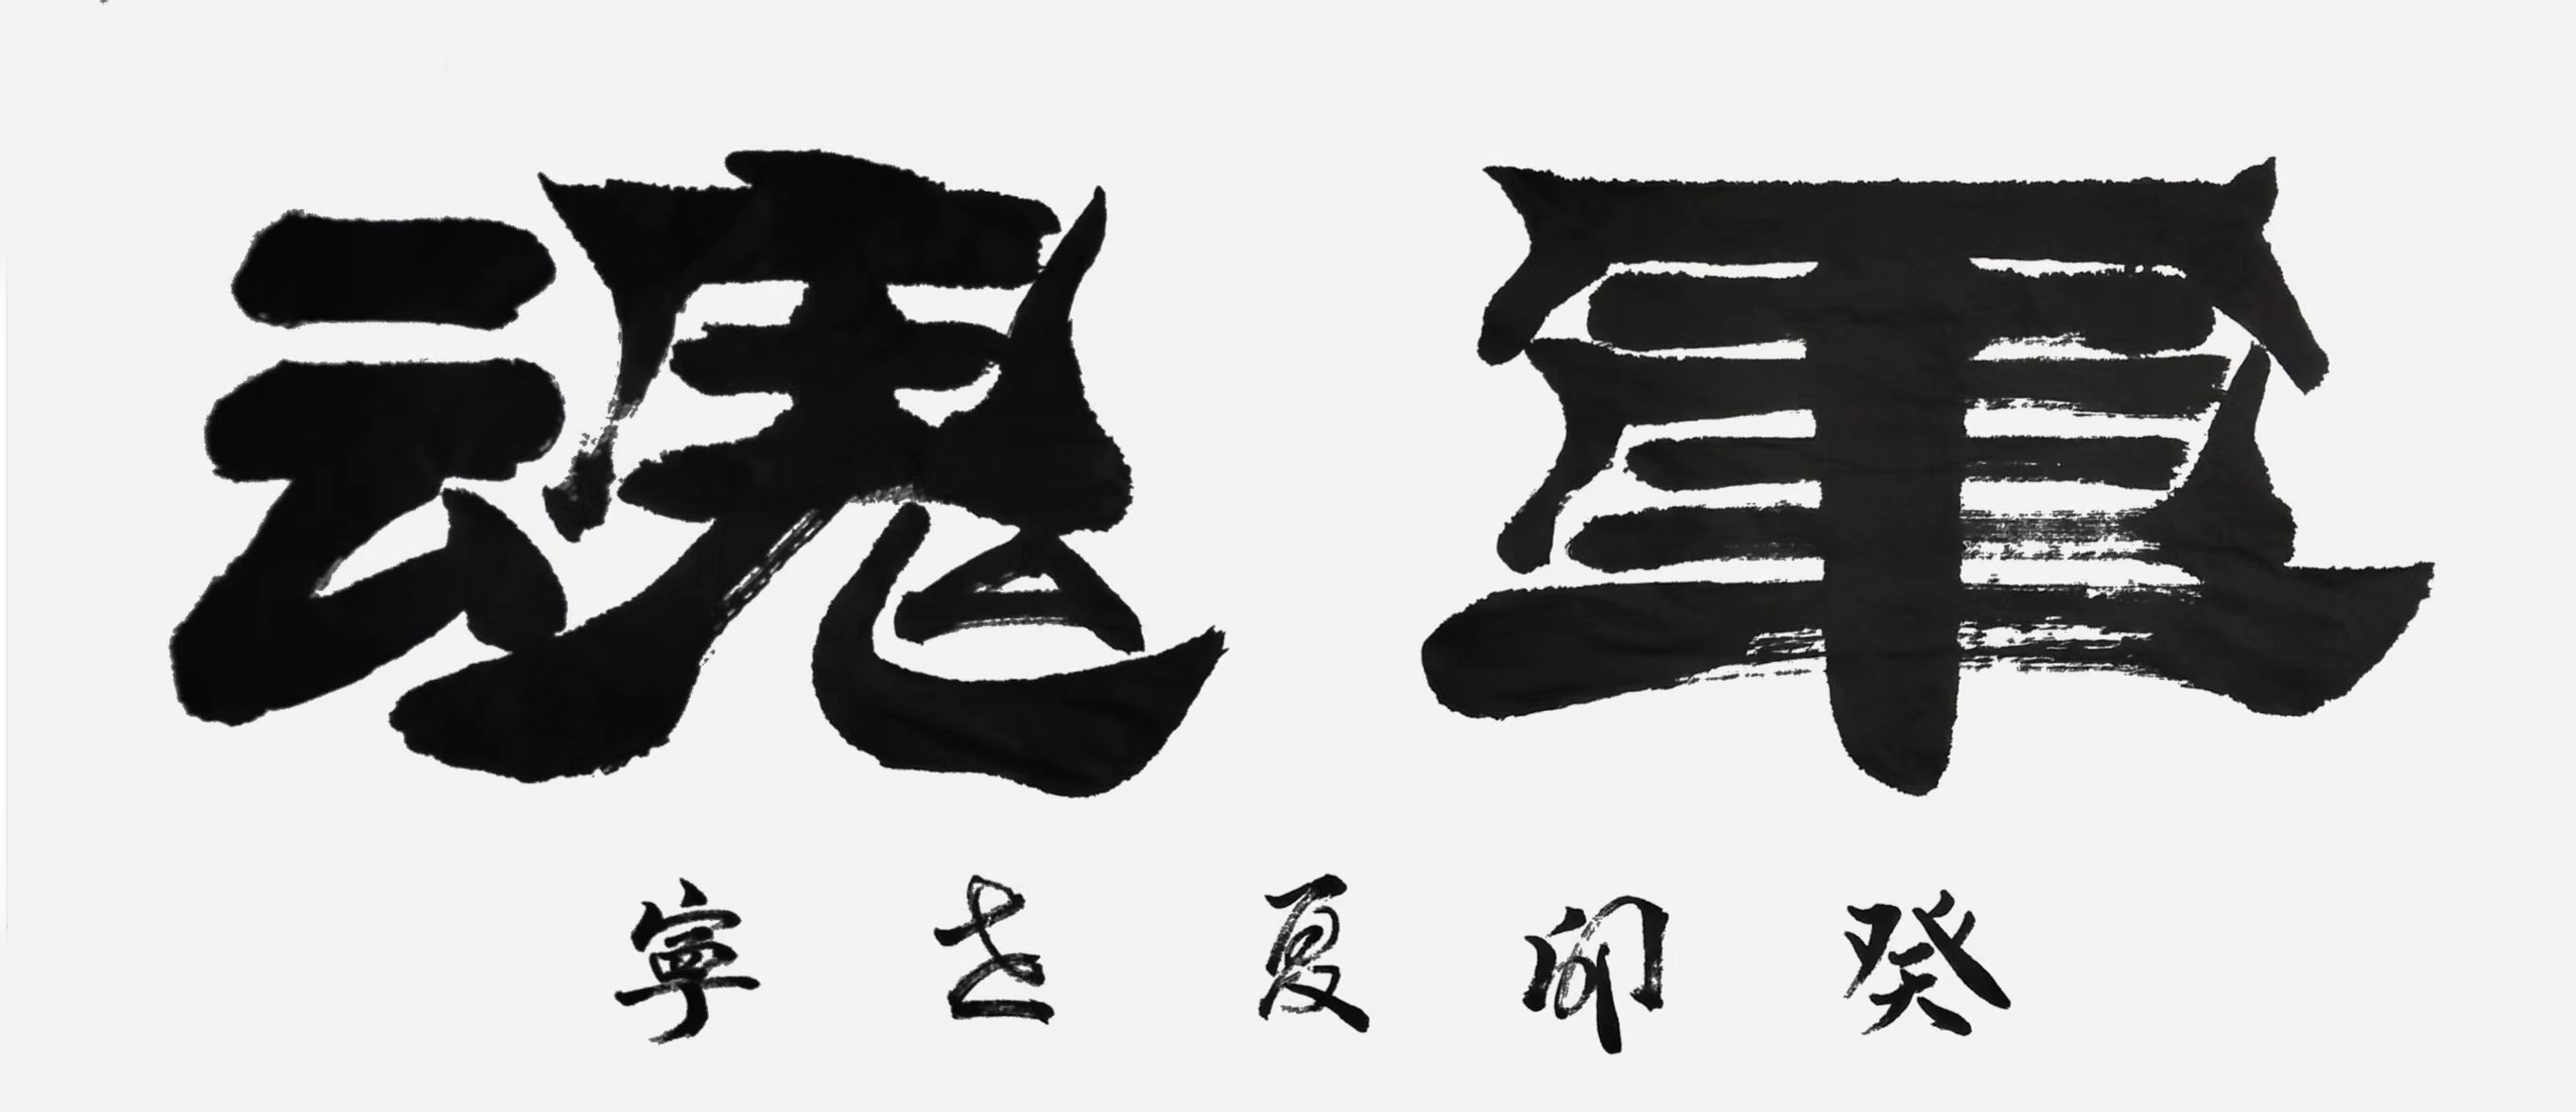 軍魂
癸卯夏志寧